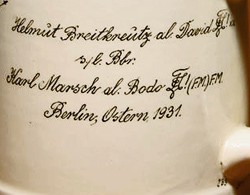 Helmüt Breitkreütz al. David
s/l. Bbr.
Karl Marsch al. Bodo (F.M.) F.M.
Berlin, Ostern 1931.